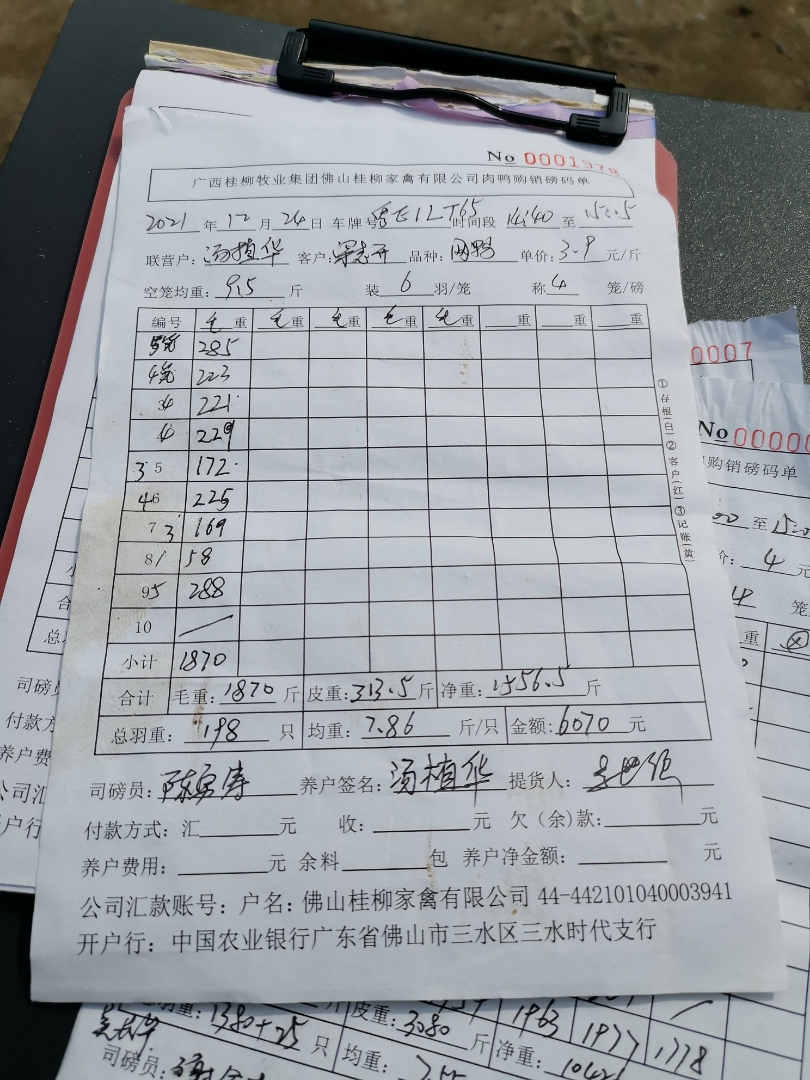 No 0001379
广西桂柳牧业集团佛山桂柳家禽有限公司肉鸭购销磅码单
2021 年 12 月 24 日 车牌号 粤E1LT65 时间段 14:40 至 15:05
联营户: 汤植华 客户: 品种: 单价: 3.9 元/斤
空笼均重: 9.5 斤 装 6 羽/笼 称 4 笼/磅
编号 毛重 毛重 毛重 毛重 毛重 重 重 重
285
223
221
4 229
3 5 172
4 6 225
7 3 169
8 1 58
9 5 288
10
小计 1870
合计 毛重: 1870 斤 皮重: 313.5 斤 净重: 1556.5 斤
总羽重: 198 只 均重: 7.86 斤/只 金额: 6070 元
司磅员: 养户签名: 汤植华 提货人:
付款方式: 汇 元 收: 元 欠(余)款: 元
养户费用: 元 余料 包 养户净金额: 元
公司汇款账号: 户名: 佛山桂柳家禽有限公司 44-442101040003941
开户行: 中国农业银行广东省佛山市三水区三水时代支行
①存根(白)②客户(红)③记账(黄)
0007
No 00000
购销磅码单
至 15:00
价: 4 元
重
司磅员
付款方
养户费
公司汇
户行
总羽重: 1380+25 只 皮重: 3080 斤 1963 1977 1778
司磅员: 均重: 净重: